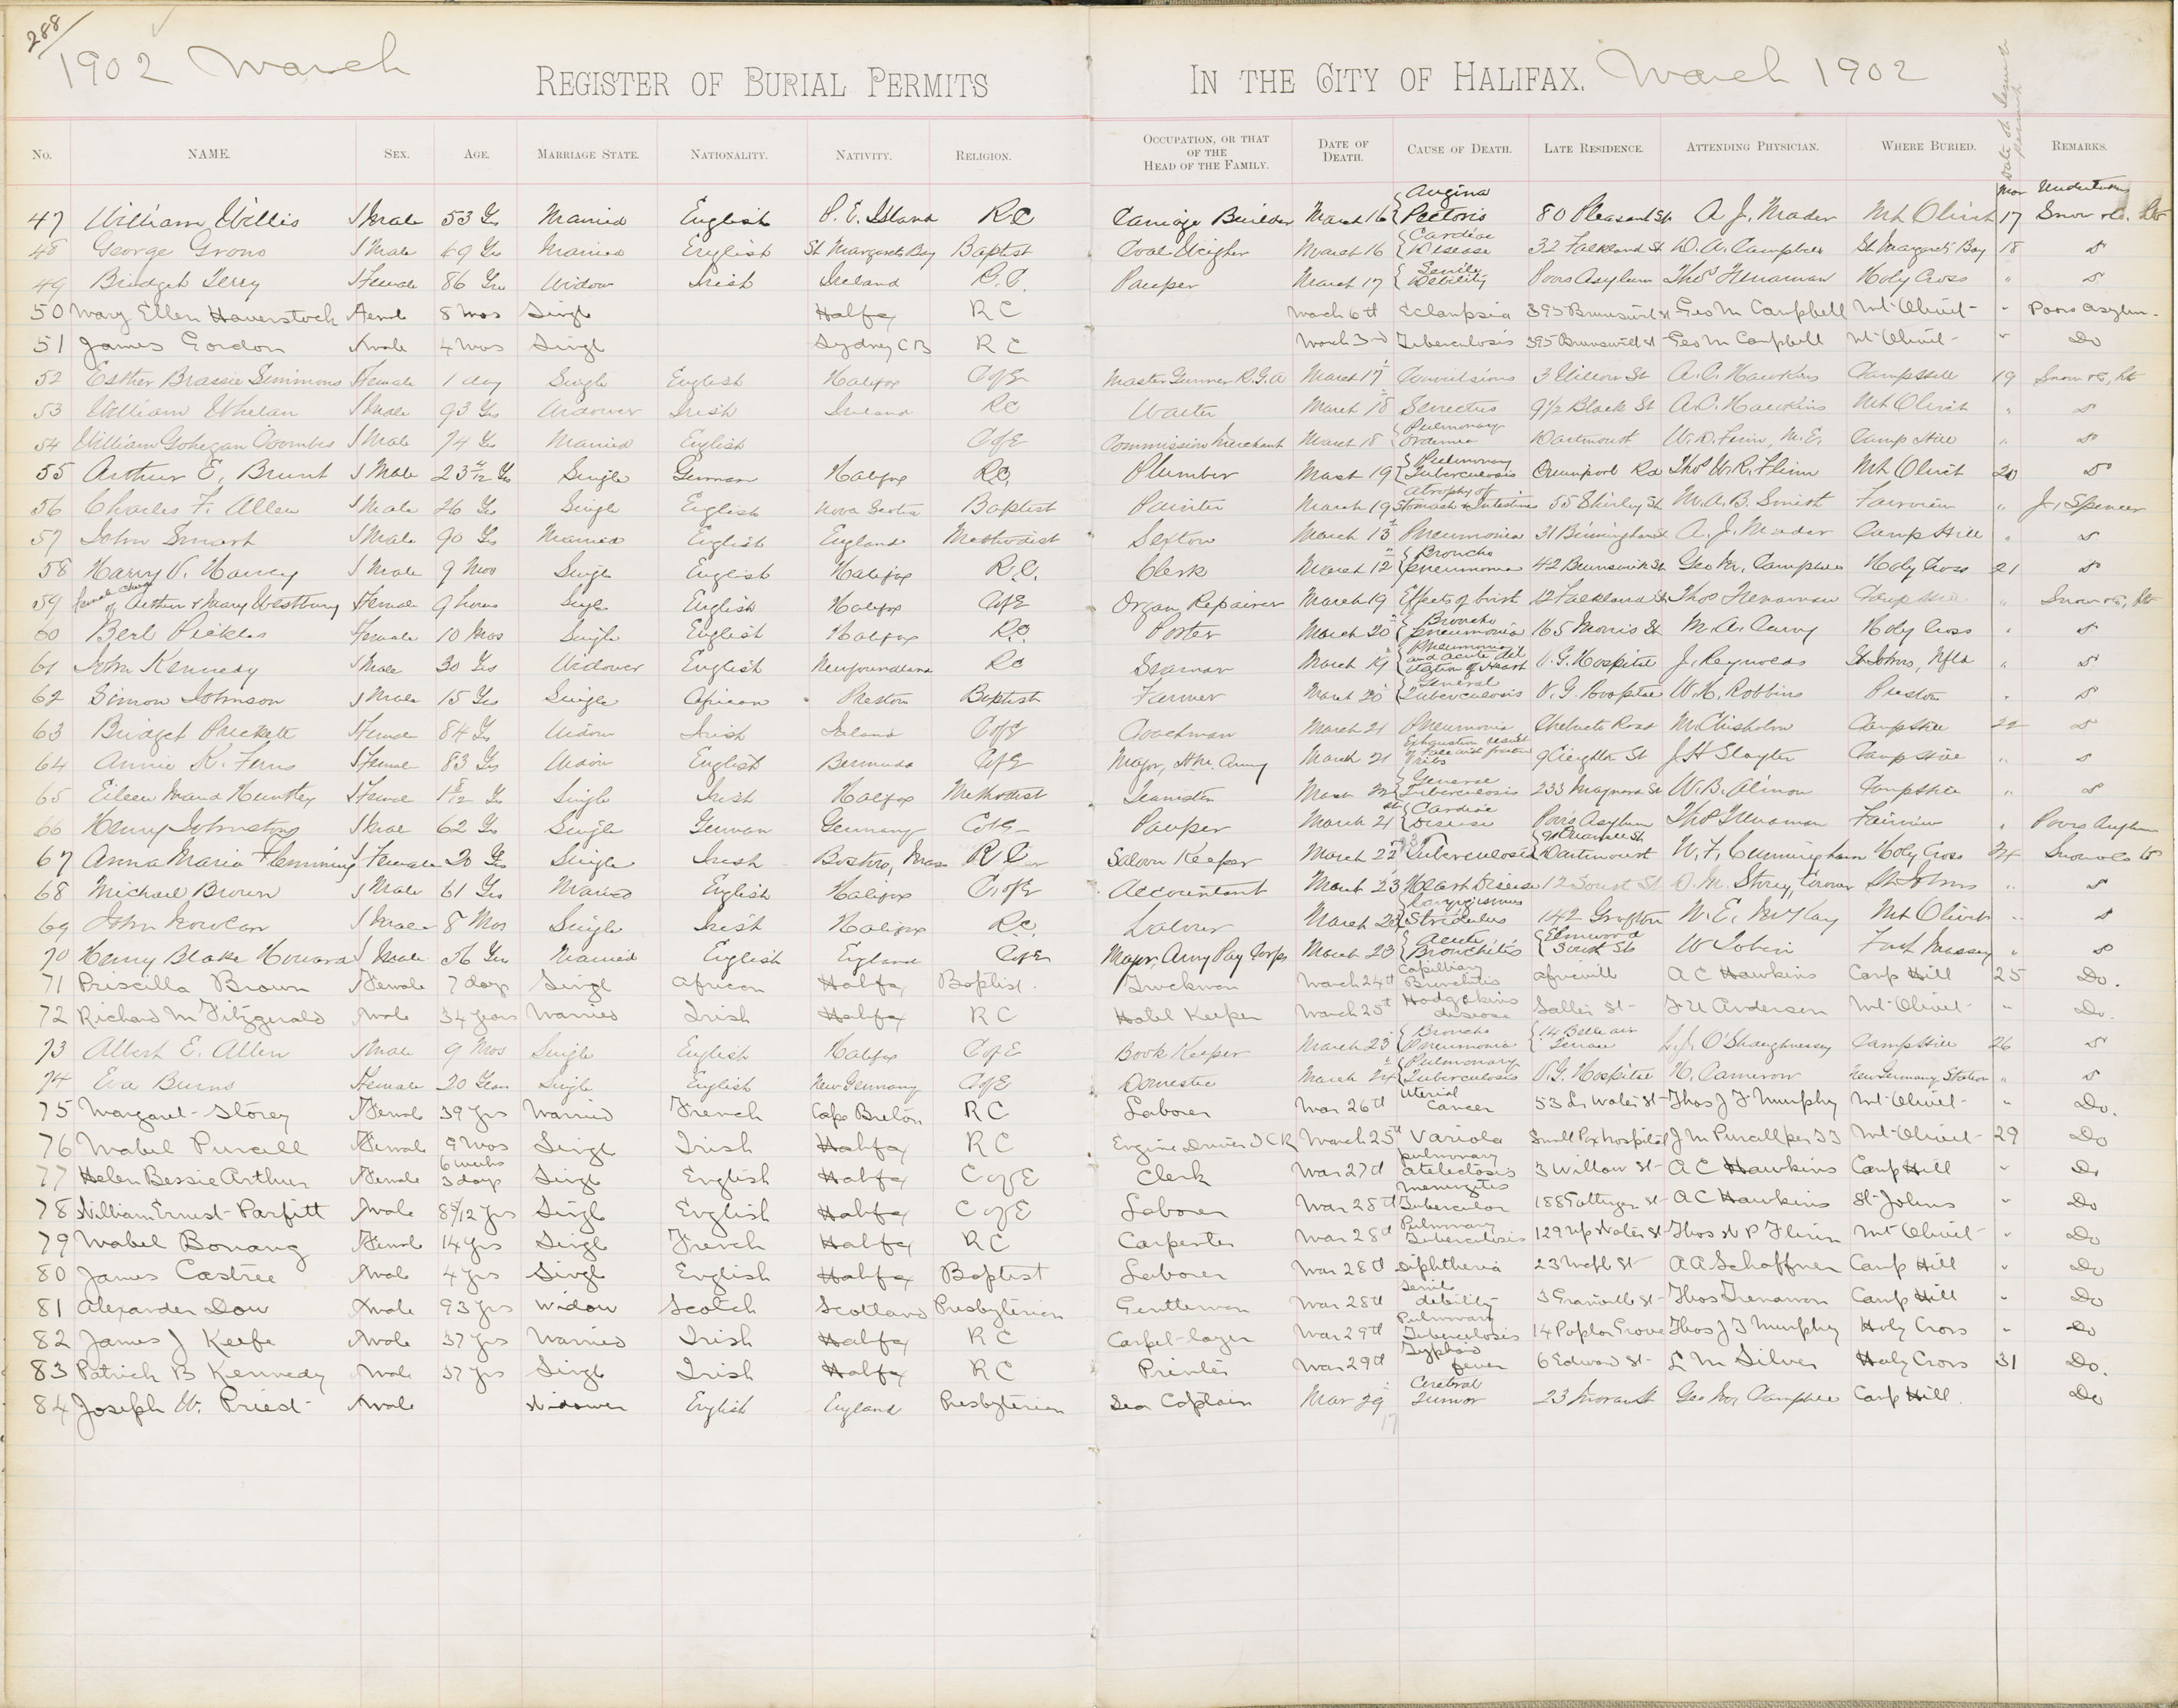 288
1902 March
REGISTER OF BURIAL PERMITS IN THE CITY OF HALIFAX. March 1902
No. NAME. SEX. AGE. MARRIAGE STATE. NATIONALITY. NATIVITY. RELIGION. OCCUPATION, OR THAT OF THE HEAD OF THE FAMILY. DATE OF DEATH. CAUSE OF DEATH. LATE RESIDENCE. ATTENDING PHYSICIAN. WHERE BURIED. REMARKS.
Mar Undertaker
47 William Willis Male 53 Yrs Married English P. E. Island RC Carriage Builder March 16 Angina Pectoris 80 Pleasant St A. J. Mader Mt Olivet 17 Snow & Co.
48 George Grono Male 69 Yrs Married English St Margarets Bay Baptist Coal Weigher March 16 Cardiac Disease 32 Falkland St D. A. Campbell St Margarets Bay 18 Do
49 Bridget Terry Female 86 Yrs Widow Irish Ireland R.C. Pauper March 17 Senile Debility Poors Asylum Thos Trenaman Holy Cross " Do
50 Mary Ellen Haverstock Female 8 mos Single Halifax RC March 6th Eclampsia 395 Brunswick St Geo M Campbell Mt Olivet " Poors Asylum
51 James Gordon Male 4 mos Single Sydney CB RC March 3rd Tuberculosis 395 Brunswick St Geo M Campbell Mt Olivet " Do
52 Esther Brassie Simmons Female 1 day Single English Halifax C of E Master Gunner R.G.A March 17 Convulsions 3 Willow St A. C. Hawkins Camp Hill 19 Snow & Co,
53 William Whelan Male 93 Yrs Widower Irish Ireland RC Waiter March 18 Senectus 9½ Black St A. C. Hawkins Mt Olivet " Do
54 William Gohegan Coombes Male 74 Yrs Married English C of E Commission Merchant March 18 Pulmonary Oedema Dartmouth W. D. Finn, M.E. Camp Hill " Do
55 Arthur E. Brunt Male 23 Yrs Single German Halifax RC. Plumber March 19 Pulmonary Tuberculosis Quinpool Rd Thos W. R. Flinn Mt Olivet 20 Do
56 Charles F. Allen Male 26 Yrs Single English Nova Scotia Baptist Painter March 19 Atrophy of Stomach & Intestines 55 Shirley St M. A. B. Smith Fairview " J. Spencer
57 John Smart Male 90 Yrs Married English England Methodist Sexton March 13 Pneumonia 31 Birmingham St A. J. Mader Camp Hill " Do
58 Harry V. Harvey Male 9 Mos Single English Halifax R.C. Clerk March 12 Broncho pneumonia 42 Brunswick St Geo M. Campbell Holy Cross 21 Do
59 female child of Arthur & Mary Westbury Female 9 hours Single English Halifax C of E Organ Repairer March 19 Effects of birth 12 Falkland St Thos Trenaman Camp Hill " Snow & Co,
60 Berl Pickles Female 10 Mos Single English Halifax RC. Porter March 20 Broncho pneumonia 165 Morris St M. A. Curry Holy Cross " Do
61 John Kennedy Male 30 Yrs Widower English Newfoundland RC Seaman March 19 Pneumonia and acute dilatation of Heart V. G. Hospital J. Reynolds St Johns, Nfld " Do
62 Simon Johnson Male 15 Yrs Single African Preston Baptist Farmer March 20 General Tuberculosis V. G. Hospital W. H. Robbins Preston " Do
63 Bridget Prickett Female 84 Yrs Widow Irish Ireland C of E Coachman March 21 Pneumonia Chebucto Road M. Chisholm Camp Hill 22 Do
64 Annie K. Ferns Female 83 Yrs Widow English Bermuda C of E Major, H.M. Army March 21 Exhaustion result of fall and fractured ribs 9 Creighton St J H Slayter Camp Hill " Do
65 Eileen Maud Huntley Female 1 5/12 Yrs Single Irish Halifax Methodist March 22 General Tuberculosis 233 Maynard St W. B. Almon Camp Hill " Do
66 Henry Johnstone Male 62 Yrs Single German Germany C of E Pauper March 21 Cardiac Disease Poors Asylum Thos Trenaman Fairview " Poors Asylum
67 Anna Maria Flemming Female 20 Yrs Single Irish Boston, Mass R C Saloon Keeper March 22 Tuberculosis Dartmouth W. F. Cunningham Holy Cross 24 Snow & Co
68 Michael Brown Male 61 Yrs Married English Halifax C. of E Accountant March 23 Heart Disease 12 South St D. M. Storey, Coroner St Johns " Do
69 John Nowlan Male 8 Mos Single Irish Halifax RC. Labour March 23 Laryngismus Stridulus 142 Grafton N. E. McKay Mt Olivet " Do
70 Henry Blake Howard Male 56 Yrs Married English England C of E Major, Army Pay Corps March 23 Acute Bronchitis Elmwood South St W Tobin Fort Massey " Do
71 Priscilla Brown Female 7 days Single African Halifax Baptist Truckman March 24th Capillary Bronchitis Africville A C Hawkins Camp Hill 25 Do.
72 Richard M Fitzgerald Male 34 years Married Irish Halifax RC Hotel Keeper March 25th Hodgkins disease Salter St F U Anderson Mt Olivet " Do.
73 Albert E. Allen Male 9 Mos Single English Halifax C of E Book Keeper March 23 Broncho Pneumonia 14 Belle air Terrace J. J. O'Shaughnessy Camp Hill 26 Do
74 Eva Burns Female 20 Years Single English New Germany C of E Domestic March 24 Pulmonary Tuberculosis V. G. Hospital H. Cameron New Germany Station " Do
75 Margaret Storey Female 39 yrs Married French Cape Breton RC Laborer Mar 26th Uterial Cancer 53 Lr Water St Thos J F Murphy Mt Olivet " Do.
76 Mabel Purcell Female 9 mos Single Irish Halifax RC Engine Driver I C R March 25th Variola Small Pox hospital J M Purcell Mt Olivet 29 Do
77 Helen Bessie Arthur Female 6 weeks 3 days Single English Halifax C of E Clerk Mar 27th pulmonary atelectasis 3 Willow St A C Hawkins Camp Hill " Do
78 William Ernest Parfitt Male 8 5/12 yrs Single English Halifax C of E Laborer Mar 28th Meningitis Tubercular 188 Gottingen St A C Hawkins St Johns " Do
79 Mabel Bonang Female 14 yrs Single French Halifax RC Carpenter Mar 28th Pulmonary Tuberculosis 129 Up Water St Thos W P Flinn Mt Olivet " Do
80 James Castree Male 4 yrs Single English Halifax Baptist Laborer Mar 28th Diphtheria 23 St A A Schaffner Camp Hill " Do
81 Alexander Dow Male 93 yrs Widow Scotch Scotland Presbyterian Gentleman Mar 28th Senile debility 3 Granville St Thos Trenaman Camp Hill " Do
82 James J Keefe Male 37 yrs Married Irish Halifax RC Carpet-layer Mar 29th Pulmonary Tuberculosis 14 Poplar Grove Thos J F Murphy Holy Cross " Do
83 Patrick B Kennedy Male 37 yrs Single Irish Halifax RC Printer Mar 29th Typhoid fever 6 Edward St L M Silver Holy Cross 31 Do.
84 Joseph W. Priest Male Widower English England Presbyterian Sea Captain Mar 29 Cerebral Tumor 23 Morris St Geo M. Campbell Camp Hill. Do